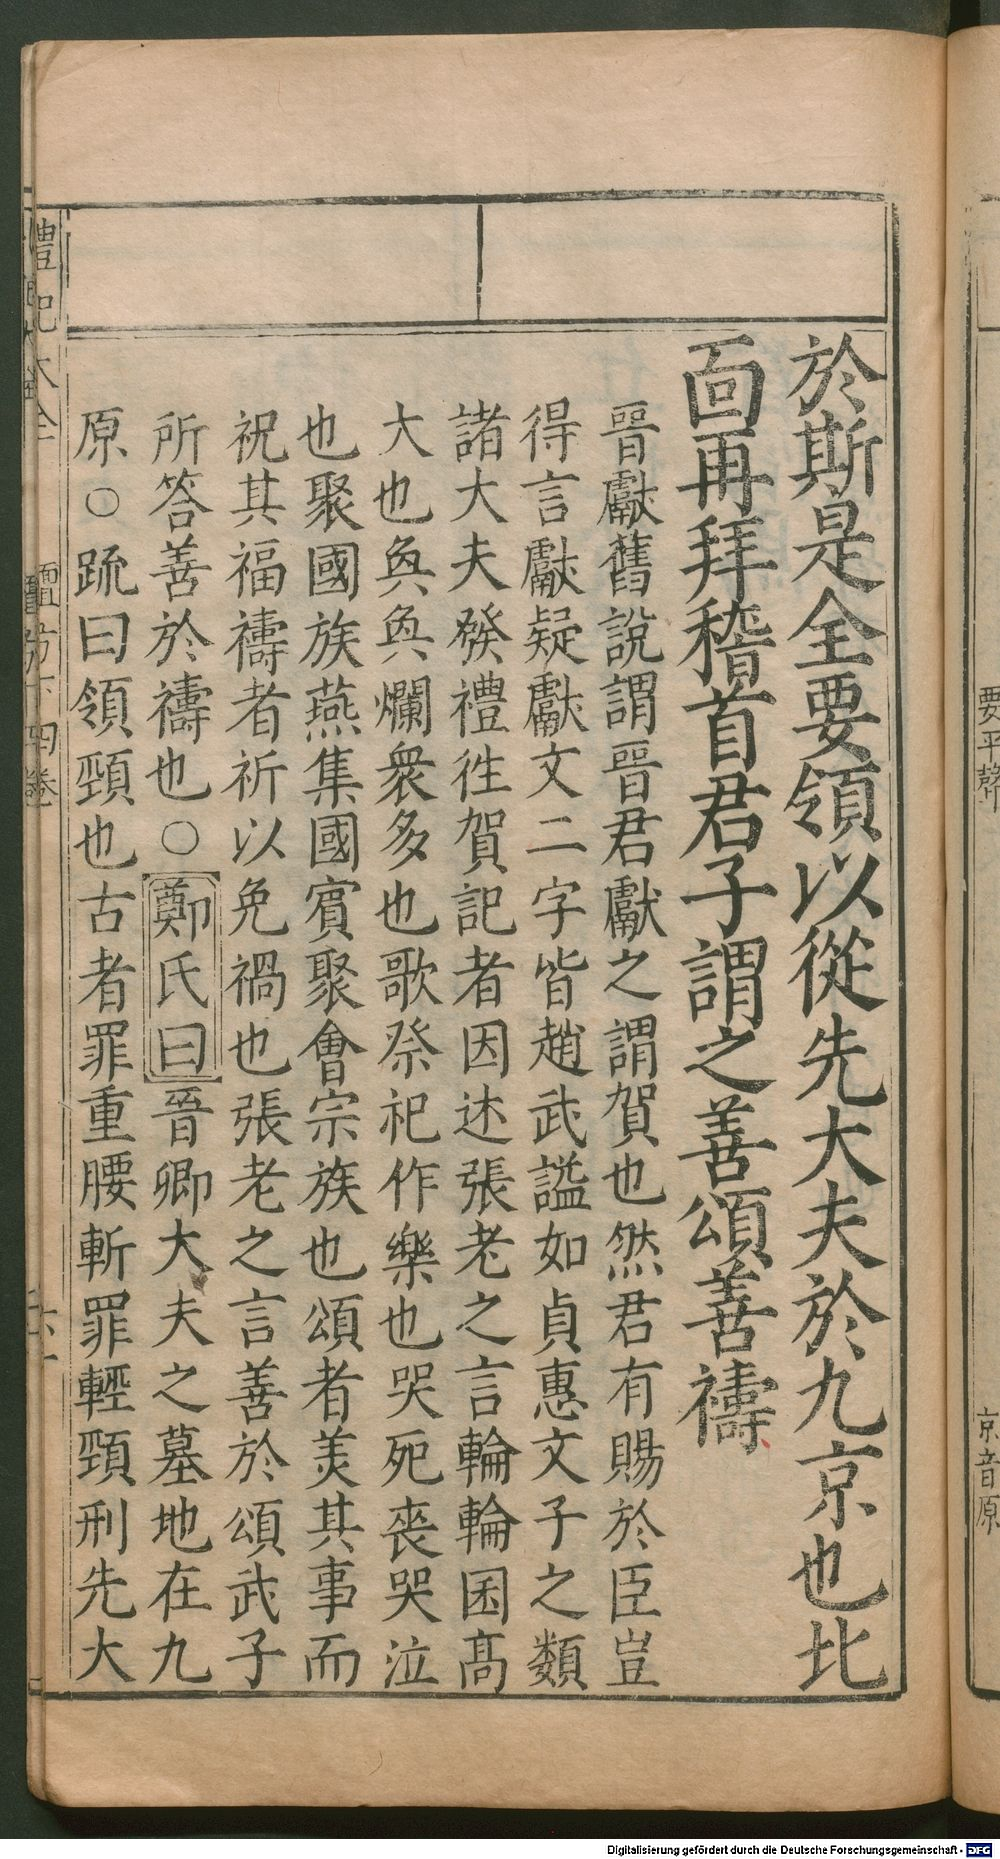 於斯是全要領以從先大夫於九京也北
靣再拜稽首君子謂之善頌善禱
晉獻舊說謂晉君獻之謂賀也然君有賜於臣豈
得言獻疑獻文二字皆趙武謚如貞惠文子之類
諸大夫發禮徃賀記者因述張老之言輪輪囷髙
大也奐奐爛衆多也歌祭祀作樂也哭死喪哭泣
也聚國族燕集國賔聚㑹宗族也頌者美其事而
祝其福禱者祈以免禍也張老之言善於頌武子
所答善於禱也○鄭氏曰晉卿大夫之墓地在九
原○疏曰領頸也古者罪重腰斬罪輕頸刑先大
禮記大全
檀弓下四卷
要平聲
京音原
Digitalisierung gefördert durch die Deutsche Forschungsgemeinschaft - DFG